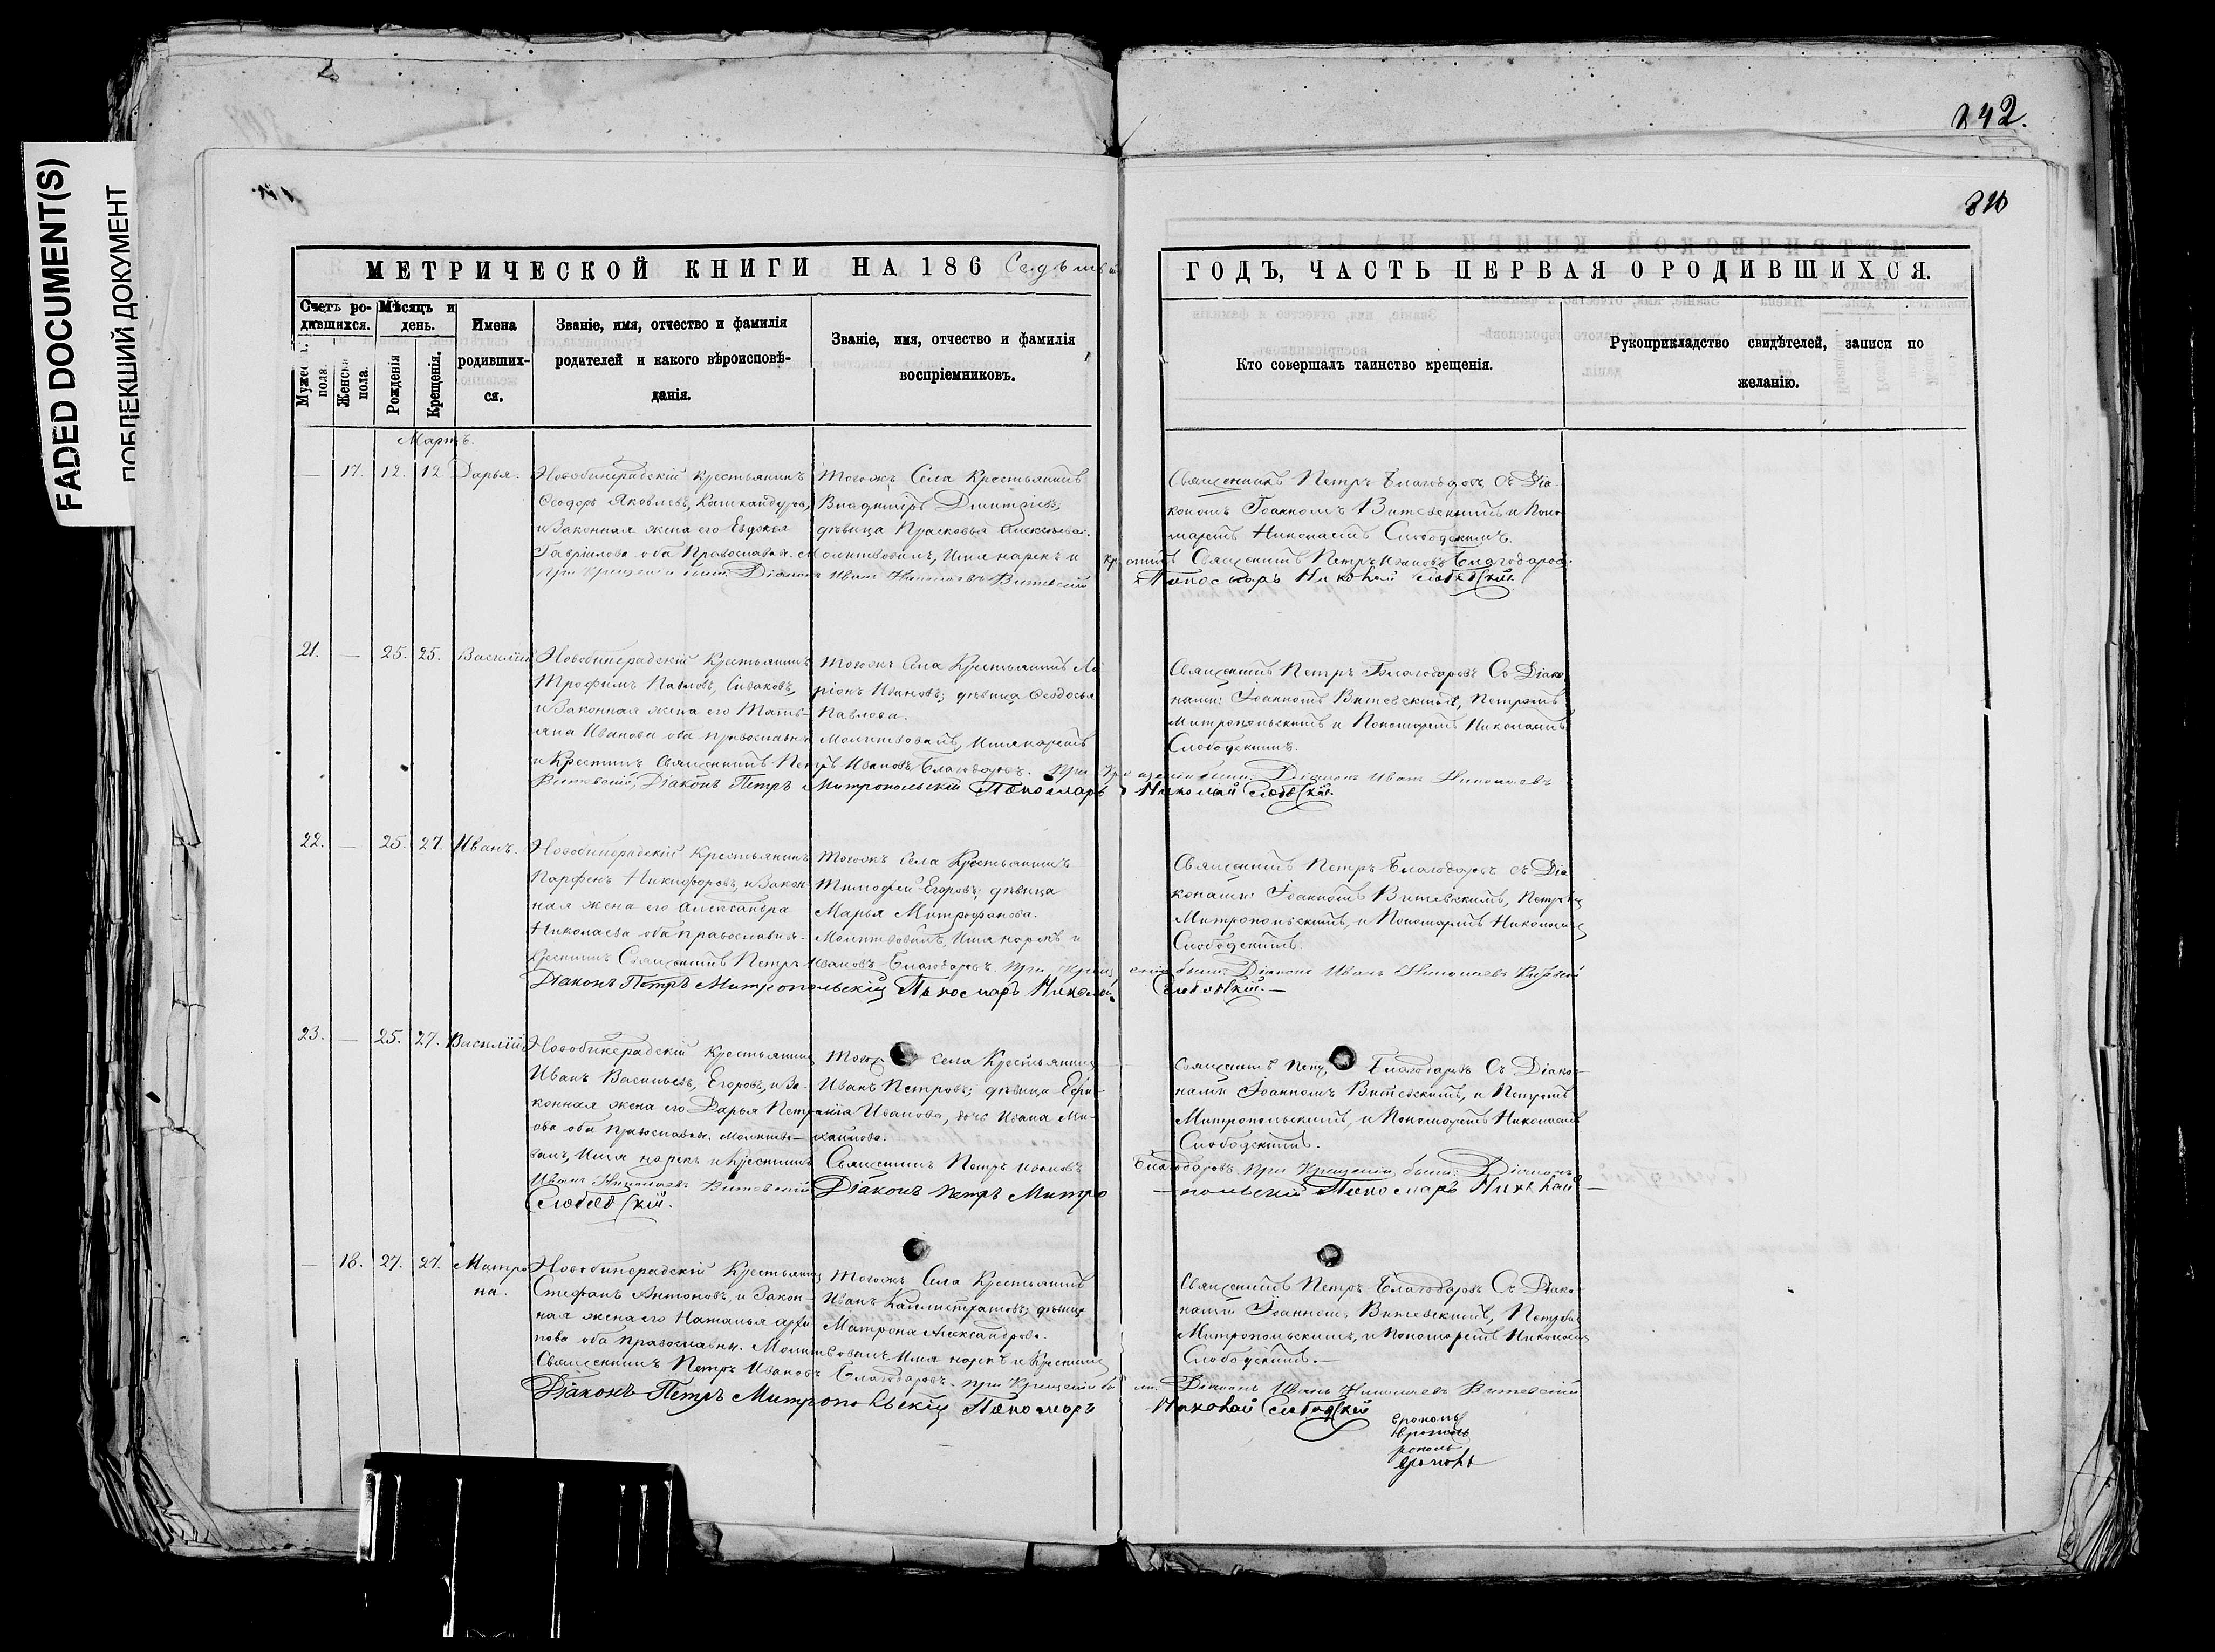 FADED DOCUMENT(S)
ПОБЛЕКШИЙ ДОКУМЕНТ
242.
МЕТРИЧЕСКОЙ КНИГИ НА 186
ГОДЪ, ЧАСТЬ ПЕРВАЯ О РОДИВШИХСЯ.
Счетъ ро-
дившихся.
Мужес
пола.
Женск
пола.
Мѣсяцъ и
день.
Рожденія
Крещенія.
Имена
родивших-
ся.
Званіе, имя, отчество и фамилія
родителей и какого вѣроисповѣ-
данія.
Званіе, имя, отчество и фамилія
воспріемниковъ.
Кто совершалъ таинство крещенія.
Рукоприкладство свидѣтелей, записи по
желанію.
Мартъ.
— 17. 12. 12 Дарья.
крестьянинъ
Ѳеодоръ Яковлевъ,
и Законная жена его Евдокея
Гаврилова оба Православн. Молитвовалъ, Имя нарекъ и
при Крещеніи были: Діаконъ Иванъ Николаевъ Витевскій
Тогожъ Села Крестьянинъ
Владимiръ Дмитріевъ;
дѣвица Прасковья Алексѣева.
Священникъ Петръ Благодаровъ съ Діа-
кономъ Іоанномъ Витевскимъ и Поно-
маремъ Николаемъ Слободскимъ.
крестилъ Священникъ Петръ Ивановъ Благодаровъ.
Пономарь Николай Слободскій.
21. — 25. 25. Василій
Крестьянинъ
Трофимъ Павловъ, Сиваковъ,
и Законная жена его Татья-
яна Иванова оба православны
и Крестилъ Священникъ Петръ Ивановъ Благодаровъ. При Крещеніи были: Діаконъ Иванъ Николаевъ
Витевскій, Діаконъ Петръ Митропольскій Пономарь Николай Слободскій.
Тогожъ Села Крестьянинъ Ла-
ріонъ Ивановъ; дѣвица Ѳеодосья
Павлова.
Молитвовалъ, Имя нарекъ
Священникъ Петръ Благодаровъ Съ Діако-
нами: Іоанномъ Витевскимъ, Петромъ
Митропольскимъ и Пономаремъ Николаемъ
Слободскимъ.
22. — 25. 27. Иванъ.
Крестьянинъ
Парфенъ Никифоровъ, и Закон-
ная жена его Александра
Николаева оба православны.
Крестилъ Священникъ Петръ Ивановъ Благодаровъ. При Крещеніи были: Діаконъ Иванъ Николаевъ
Діаконъ Петръ Митропольскій Пономарь Николай Слободскій. —
Тогожъ Села Крестьянинъ
Тимофей Егоровъ; дѣвица
Марья Митрофанова.
Молитвовалъ, Имя нарекъ и
Священникъ Петръ Благодаровъ съ Діа-
конами: Іоанномъ Витевскимъ, Петромъ
Митропольскимъ, и Пономаремъ Николаемъ
Слободскимъ.
23. — 25. 27. Василій
Крестьянинъ
Иванъ Васильевъ, Егоровъ, и За-
конная жена его Дарья Петр-
ова оба православны. Молитво-
валъ, Имя нарекъ и Крестилъ
Иванъ Николаевъ Витевскій
Слободскій.
села Крестьянинъ
Иванъ Петровъ; дѣвица
Иванова, дочь Ивана Ми-
хайлова.
Священникъ Петръ Ивановъ
Діаконъ Петръ Митро
Священникъ Благодаровъ Съ Діако-
нами Іоанномъ Витевскимъ, и Петромъ
Митропольскимъ, и Пономаремъ Николаемъ
Слободскимъ.
Благодаровъ При Крещеніи были: Діаконъ
польскій Пономарь Николай —
— 18. 27. 27. Матро
на.
Крестьянинъ
Стефанъ Антоновъ, и Закон-
ная жена его Наталья Архи-
пова оба православны. Молитвовалъ Имя нарекъ и Крестилъ
Священникъ Петръ Ивановъ Благодаровъ. При Крещеніи были: Діаконъ Иванъ Николаевъ Витевскій
Діаконъ Петръ Митропольскій Пономарь Николай Слободскій
Тогожъ Села Крестьянинъ
Иванъ Каллистратовъ; дѣвица
Матрона Александрова.
Священникъ Петръ Благодаровъ Съ Діако-
нами Іоанномъ Витевскимъ, Петромъ
Митропольскимъ, и Пономаремъ Николаемъ
Слободскимъ. —